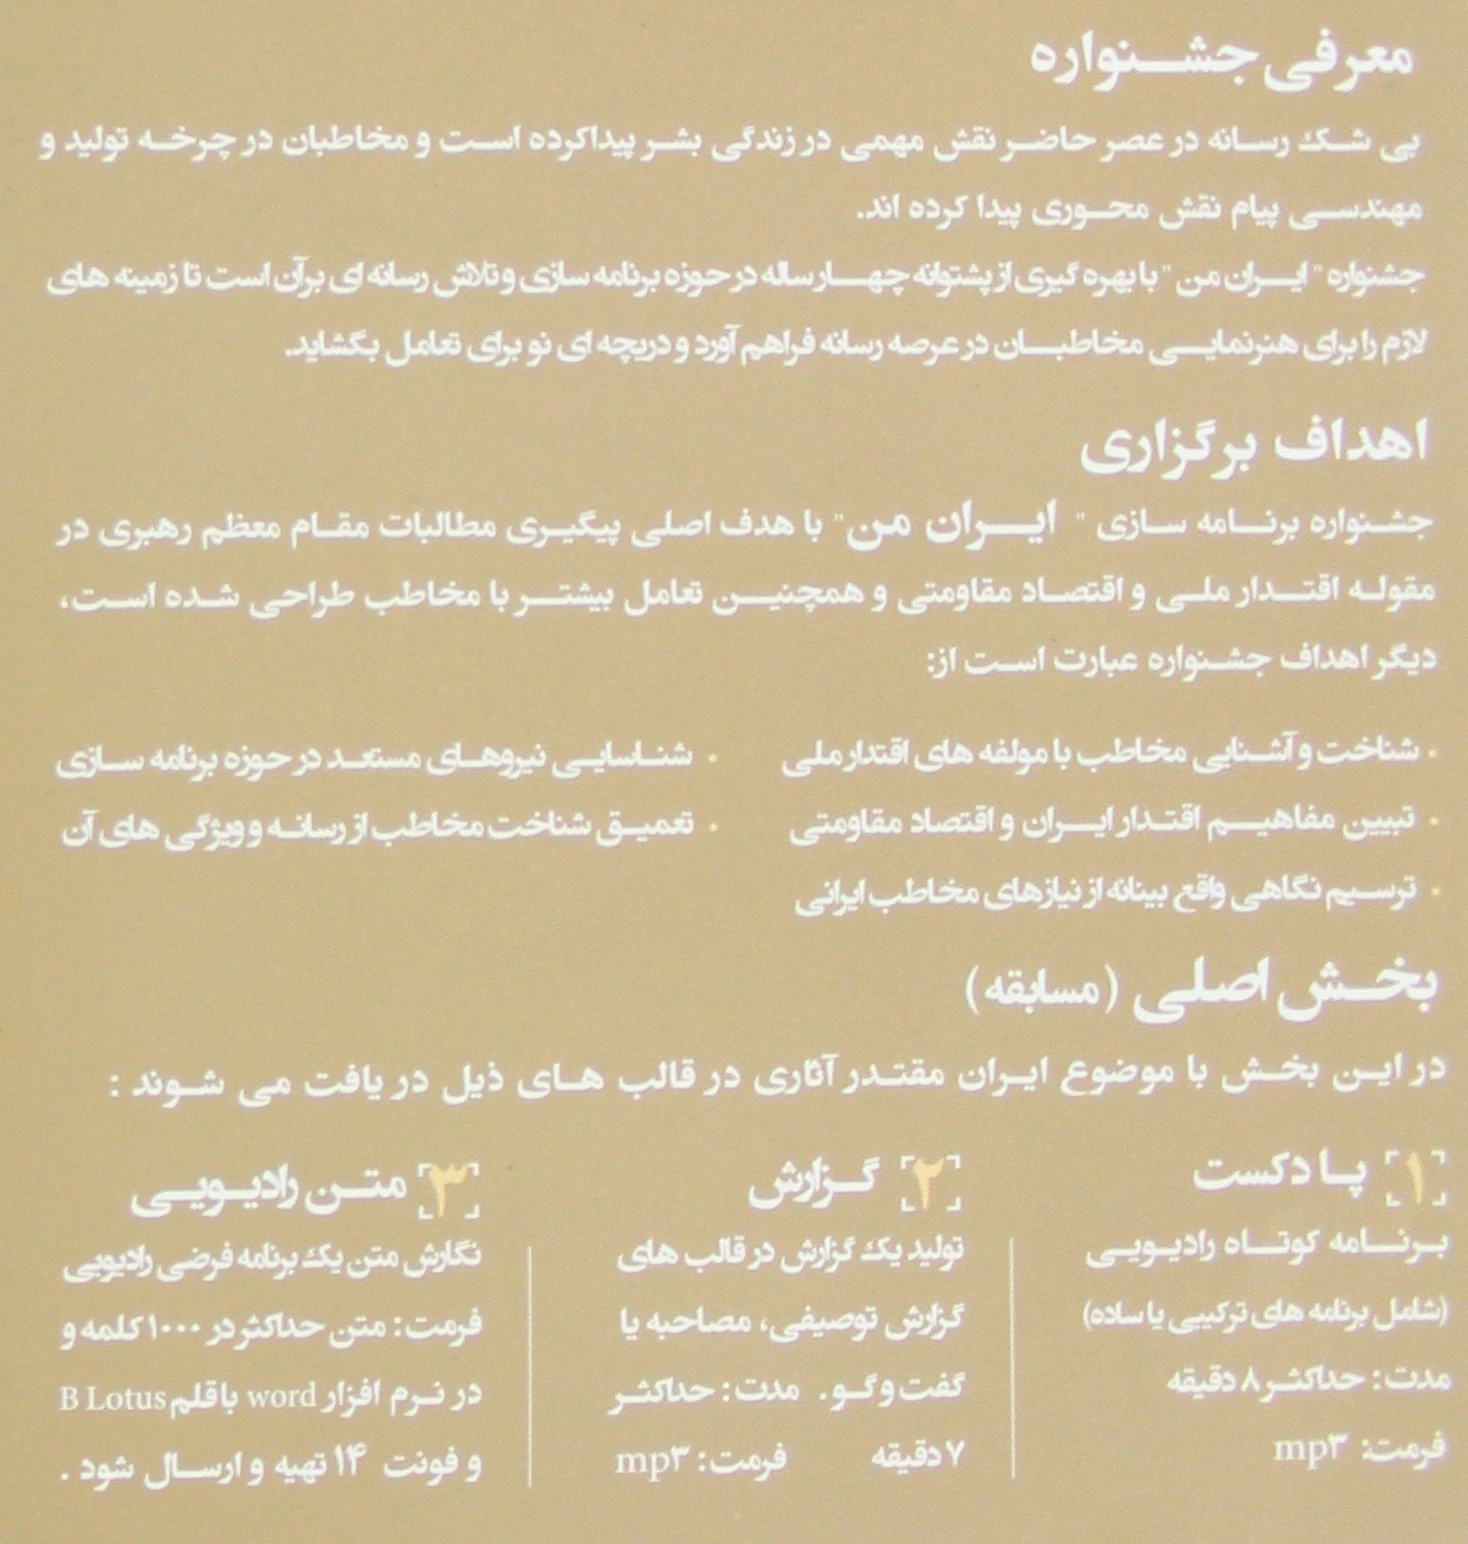 معرفی جشنواره
بی شک رسانه در عصر حاضر نقش مهمی در زندگی بشر پیداکرده است و مخاطبان در چرخه تولید و
مهندسی پیام نقش محوری پیدا کرده اند.
جشنواره " ایران من " با بهره گیری از پشتوانه چهارساله در حوزه برنامه سازی و تلاش رسانه ای برآن است تا زمینه های
لازم را برای هنرنمایی مخاطبان در عرصه رسانه فراهم آورد و دریچه ای نو برای تعامل بگشاید.
اهداف برگزاری
جشنواره برنامه سازی " ایران من" با هدف اصلی پیگیری مطالبات مقام معظم رهبری در
مقوله اقتدار ملی و اقتصاد مقاومتی و همچنین تعامل بیشتر با مخاطب طراحی شده است،
دیگر اهداف جشنواره عبارت است از:
• شناخت و آشنایی مخاطب با مولفه های اقتدار ملی
• تبیین مفاهیم اقتدار ایران و اقتصاد مقاومتی
• ترسیم نگاهی واقع بینانه از نیازهای مخاطب ایرانی
• شناسایی نیروهای مستعد در حوزه برنامه سازی
• تعمیق شناخت مخاطب از رسانه و ویژگی های آن
بخش اصلی (مسابقه)
در این بخش با موضوع ایران مقتدر آثاری در قالب های ذیل در یافت می شوند :
۱ پادکست
برنامه کوتاه رادیویی
(شامل برنامه های ترکیبی یا ساده)
مدت: حداکثر ۸ دقیقه
فرمت: mp۳
۲ گزارش
تولید یک گزارش در قالب های
گزارش توصیفی، مصاحبه یا
گفت و گو. مدت: حداکثر
۷ دقیقه فرمت: mp۳
۳ متن رادیویی
نگارش متن یک برنامه فرضی رادیویی
فرمت: متن حداکثر در ۱۰۰۰ کلمه و
در نرم افزار word با قلم B Lotus
و فونت ۱۴ تهیه و ارسال شود .